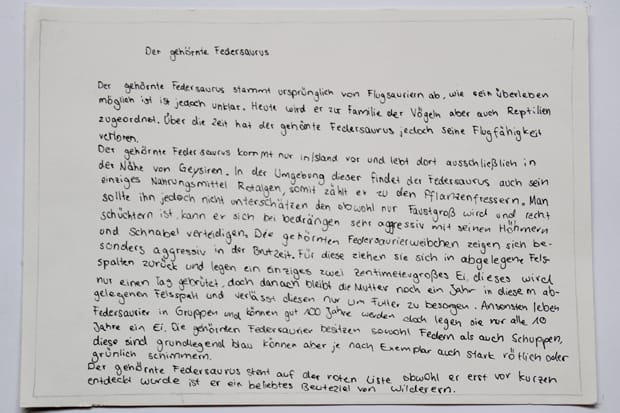 Der gehörnte Federsaurus
Der gehörnte Federsaurus stammt ursprünglich von Flugsauriern ab, wie sein überleben
möglich ist ist jedoch unklar. Heute wird er zur Familie der Vögeln aber auch Reptilien
zugeordnet. Über die Zeit hat der gehörnte Federsaurus jedoch seine Flugfähigkeit
verloren.
Der gehörnte Federsaurus kommt nur in Island vor und lebt dort ausschließlich in
der Nähe von Geysiren. In der Umgebung dieser findet der Federsaurus auch sein
einziges Nahrungsmittel Rotalgen, somit zählt er zu den Pflanzenfressern. Man
sollte ihn jedoch nicht unterschätzen den obwohl nur Faustgroß wird und recht
schüchtern ist, kann er sich bei bedrängen sehr aggressiv mit seinen Höhrnern
und Schnabel verteidigen. Die gehörnten Federsaurierweibchen zeigen sich be-
sonders aggressiv in der Brutzeit. Für diese ziehen sie sich in abgelegene Fels-
spalten zurück und legen ein einziges zwei zentimetergroßes Ei, dieses wird
nur einen Tag gebrütet, doch danach bleibt die Mutter noch ein Jahr in diesem ab-
gelegenen Felsspalt und verlässt diesen nur um Futter zu besorgen. Ansonsten leben
Federsaurier in Gruppen und können gut 100 Jahre werden doch legen sie nur alle 10
Jahre ein Ei. Die gehörnten Federsaurier besitzen sowohl Federn als auch Schuppen,
diese sind grundlegend blau können aber je nach Exemplar auch stark rötlich oder
grünlich schimmern.
Der gehörnte Federsaurus steht auf der roten Liste obwohl er erst vor kurzen
entdeckt wurde ist er ein beliebtes Beuteziel von Wilderern.